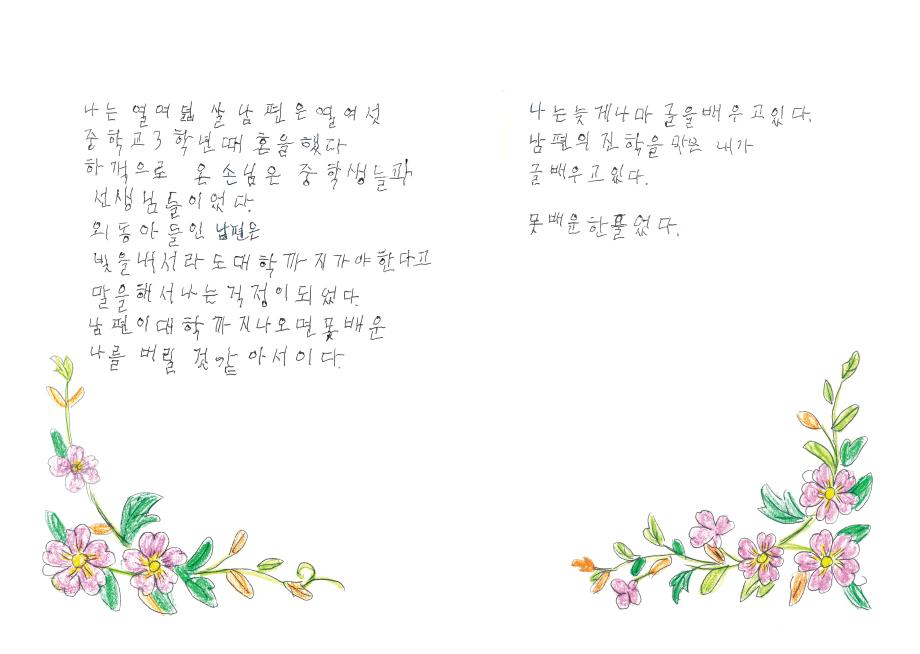 나는 열여덟 살 남편은 열여섯
중학교 3학년때 혼을 했다
하객으로 온 손님은 중학생들과
선생님들이었다.
외동아들인 남편은
빚을내서라도대학까지가야한다고
말을해서나는걱정이되었다.
남편이대학까지나오면 못배운
나를 버릴 것같아서이다.
나는늦게나마 글을배우고있다.
남편의 진학을 막은 내가
글배우고있다.
못배운한풀었다.